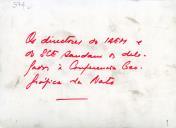 574
Os directores do IAEM e
do SCE saudam os dele-
gados à Conferencia Geo-
gráfica da Nato